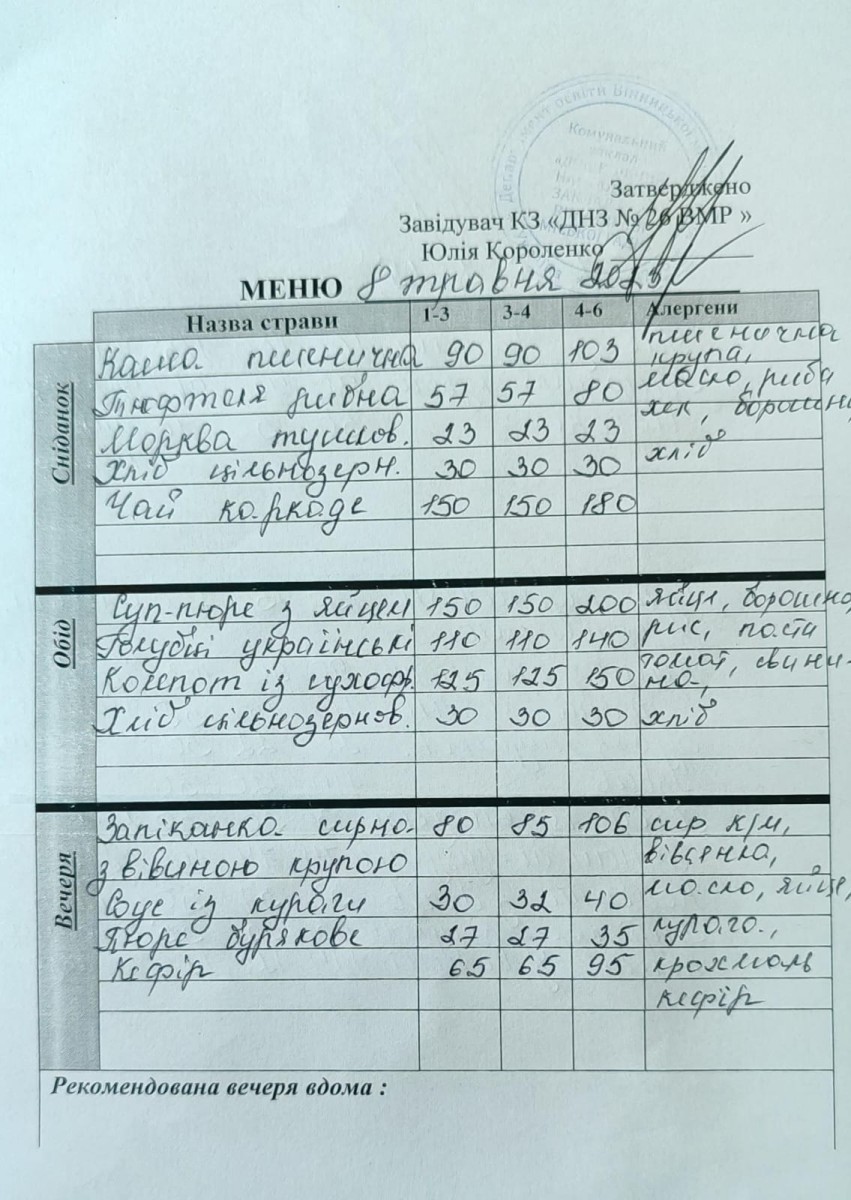 Департамент освіти Вінницької
Комунальний
заклад
Затверджено
Завідувач КЗ «ДНЗ № 26 ВМР »
Юлія Короленко
МЕНЮ 8 травня 2023
Назва страви 1-3 3-4 4-6 Алергени
Сніданок
Каша пшенична 90 90 103 пшенична крупа,
Тюфтеля рибна 57 57 80 масло, риба
Морква тушков. 23 23 23 хек, борошно
Хліб цільнозерн. 30 30 30 хліб
Чай каркаде 150 150 180
Обід
Суп-пюре з яйцем 150 150 200 яйце, борошно,
Голубці українські 110 110 140 рис, паста
Компот із сухофр. 125 125 150 томат, свини-на,
Хліб цільнозернов. 30 30 30 хліб
Вечеря
Запіканка сирна 80 85 106 сир к/м,
з вівсяною крупою вівсянка,
Соус із кураги 30 32 40 масло, яйце,
Пюре бурякове 27 27 35 курага,
Кефір 65 65 95 крохмаль
кефір
Рекомендована вечеря вдома :